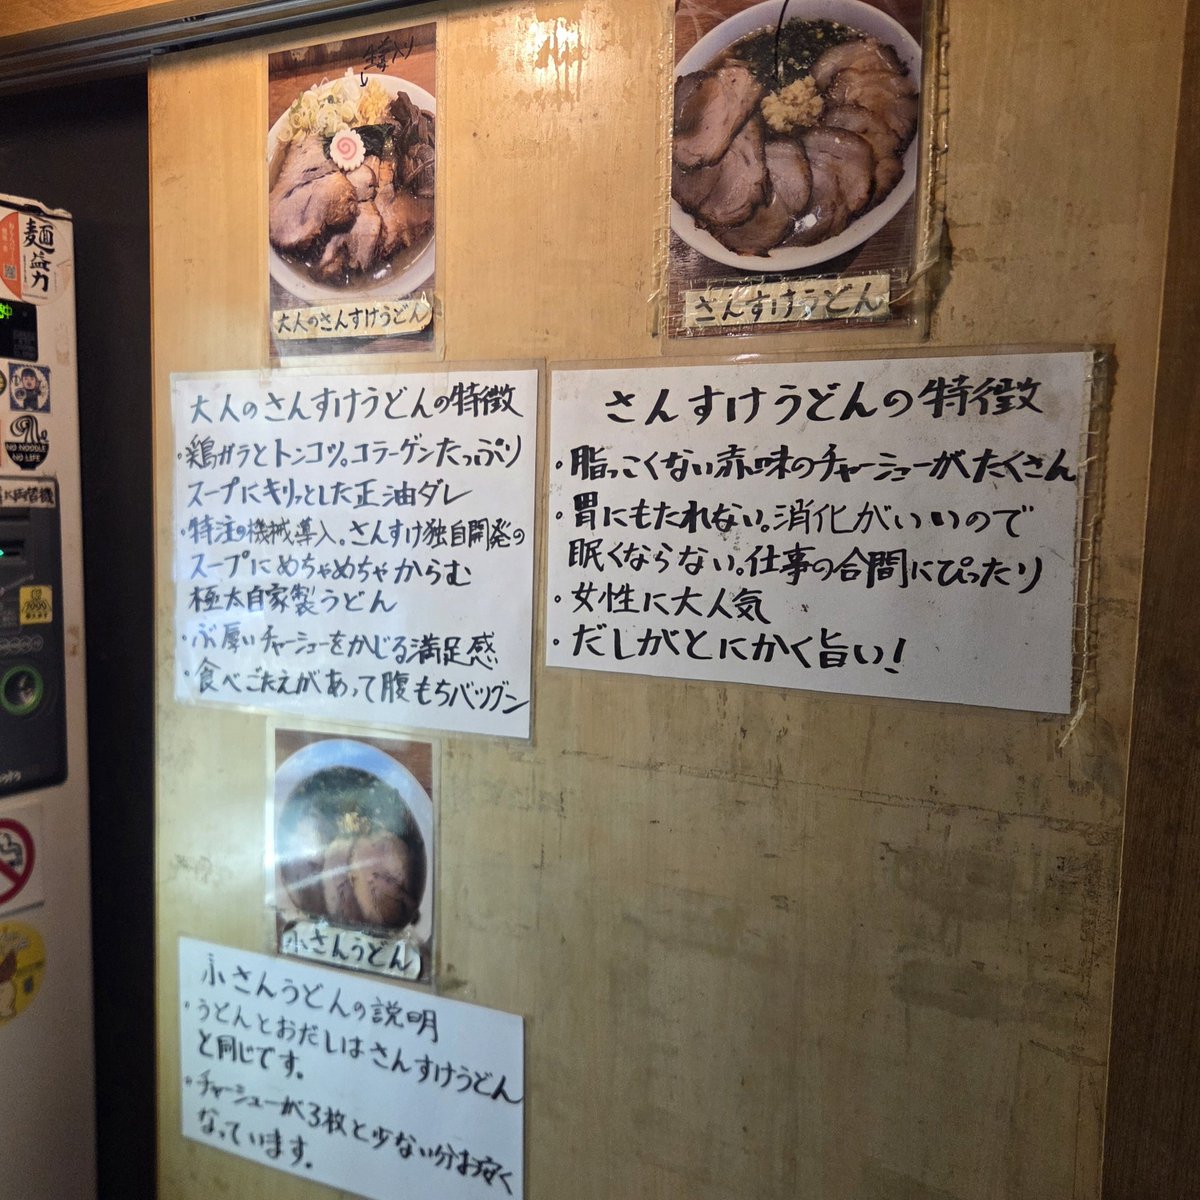 生姜入り
大人のさんすけうどん
さんすけうどん
大人のさんすけうどんの特徴
・鶏ガラとトンコツ。コラーゲンたっぷり
スープにキリッとした正油ダレ
・特注の機械導入。さんすけ独自開発の
スープにめちゃめちゃからむ
極太自家製うどん
・ぶ厚いチャーシューをかじる満足感
・食べごたえがあって腹もちバツグン
さんすけうどんの特徴
・脂っこくない赤味のチャーシューがたくさん
・胃にもたれない。消化がいいので
眠くならない。仕事の合間にぴったり
・女性に大人気
・だしがとにかく旨い!
小さんうどん
小さんうどんの説明
・うどんとおだしはさんすけうどん
と同じです。
・チャーシューが3枚と少ない分お安く
なっています。
麺益力
NO NOODLE
NO LIFE
両替機
1999